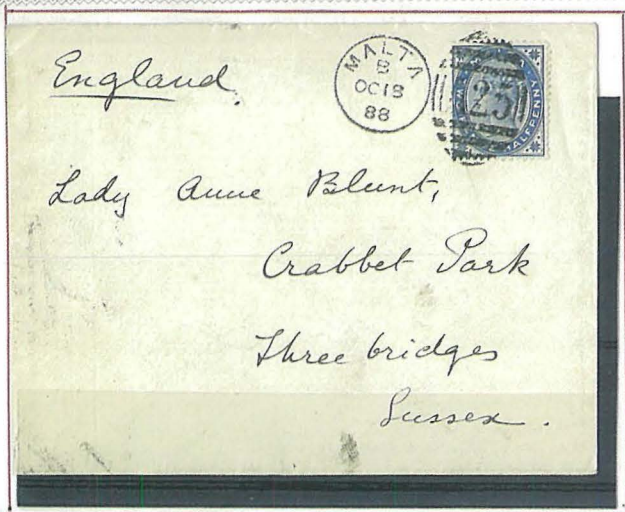 England.
MALTA
B
OC 18
88
25
HALFPENNY
Lady Anne Blunt,
Crabbet Park
Three bridges
Sussex.